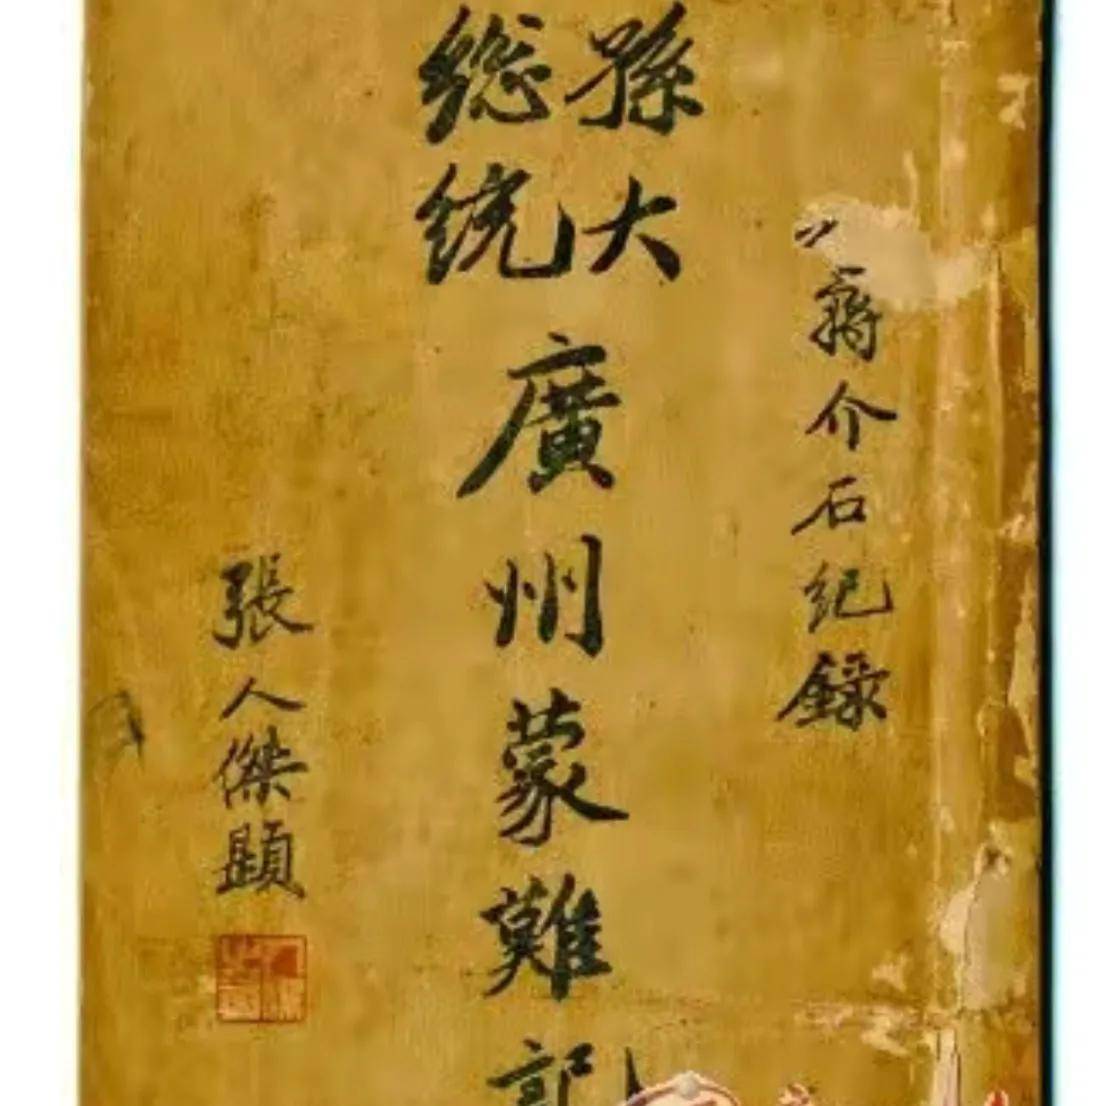 蔣介石紀錄
孫大
總統
廣州蒙難記
張人傑題